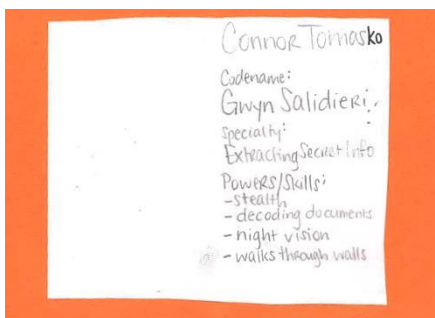 Connor Tomasko
Codename:
Gwyn Salidieri
Specialty:
Extracting Secret Info
Powers/Skills:
-stealth
- decoding documents
- night vision
- walks through walls